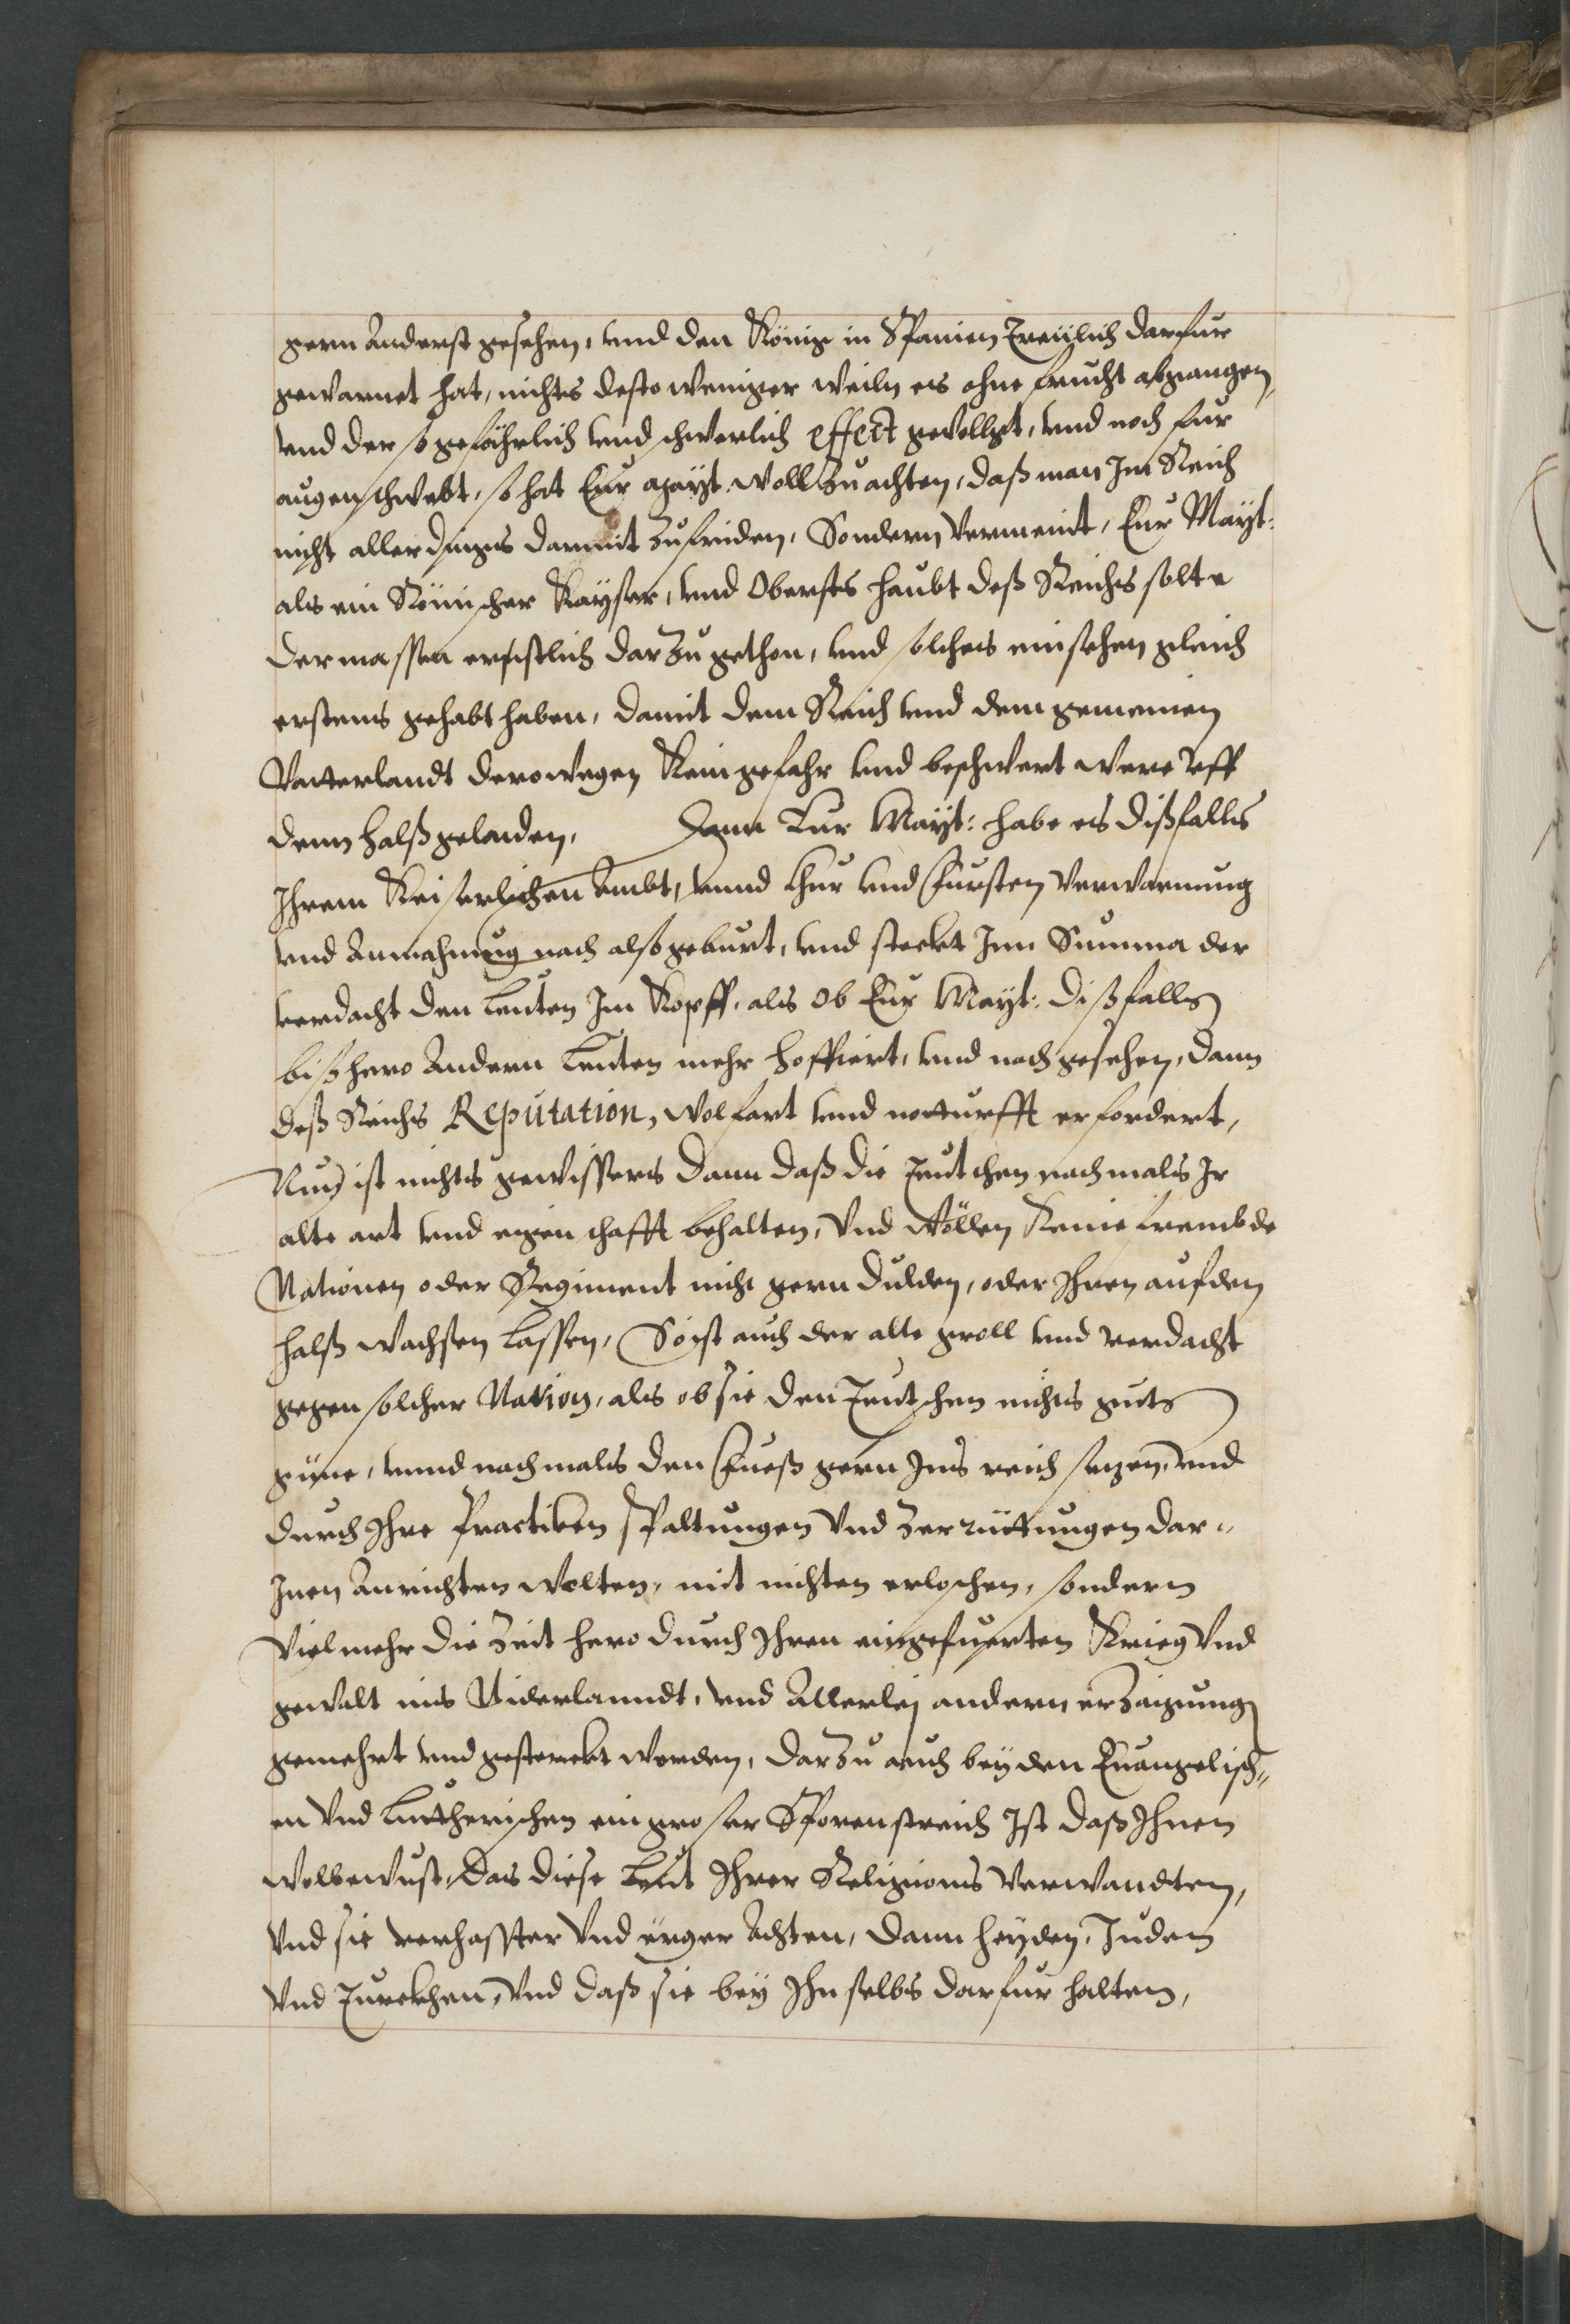 gern Anderst gesehen, vnd den König in Spanien Treülich darfur
gewarnet hat, nichts desto weniger weiln es ohne frucht abgangen,
vnd der so gefährlich vnd schwerlich effect geuollgt, vnd noch fur
augen schwebt, so hat Eur Mayt. woll Zu achten, daß man Im Reich
nicht aller dings darmit Zufriden, Sondern Vermeint, Eur Mayt:
als ein Römischer Kayser, vnd Oberstes haubt deß Reichs solte
dermassen ernstlich darZu gethon, vnd solches einsehen gleich
erstens gehabt haben, damit dem Reich vnd dem gemeinen
Vatterlandt derowegen Kein gefahr vnd beschwert were Vff
denn halß geladen, Dann Eur Mayt: habe es dißfalls
Ihrem Keiserlichen Ambt, vnnd Chur vnd Fursten Verwarnung
vnd Anmahnung nach also geburt, vnd steckt Inn Summa der
verdacht den leuten Im Kopff, als Ob Eur Mayt: dißfalls
bißhero Andern leuten mehr hoffiert, vnd nachgesehen, dann
deß Reichs Reputation, wolfart vnd notturfft erfordert,
Nun ist nichts gewissers dann daß die Teutschen nachmals Ir
alte art vnd eigenschafft behalten, Vnd wöllen Keine frembde
Nationen oder Regiment nicht gern dulden, oder Ihnen auf den
halß wachsen lassen, So ist auch der alte groll vnd verdacht
gegen solcher Nation, als ob sie den Teutschen nichts guts
güne, vnnd nachmals den Fueß gern Ins reich setzen, vnd
durch Ihre Practiken spaltungen Vnd Zerrüttungen dar-
Inen Anrichten wolten, mit nichten erloschen, sondern
Vielmehr die Zeit hero durch Ihren eingefuerten Krieg Vnd
gewalt ins Niderlanndt, vnd Allerlej andern erZaigung
gemehrt vnd gesterckt worden, darZu auch bey den Euangelisch-
en Vnd Lutherischen ein groser Sporenstreich Ist daß Ihnen
wolbewust, das diese leut Ihrer Religions Verwandten,
Vnd sie verhasster Vnd ärger Achten, dann heyden, Juden
Vnd Turckhen, Vnd daß sie bey Ihn selbs darfur halten,